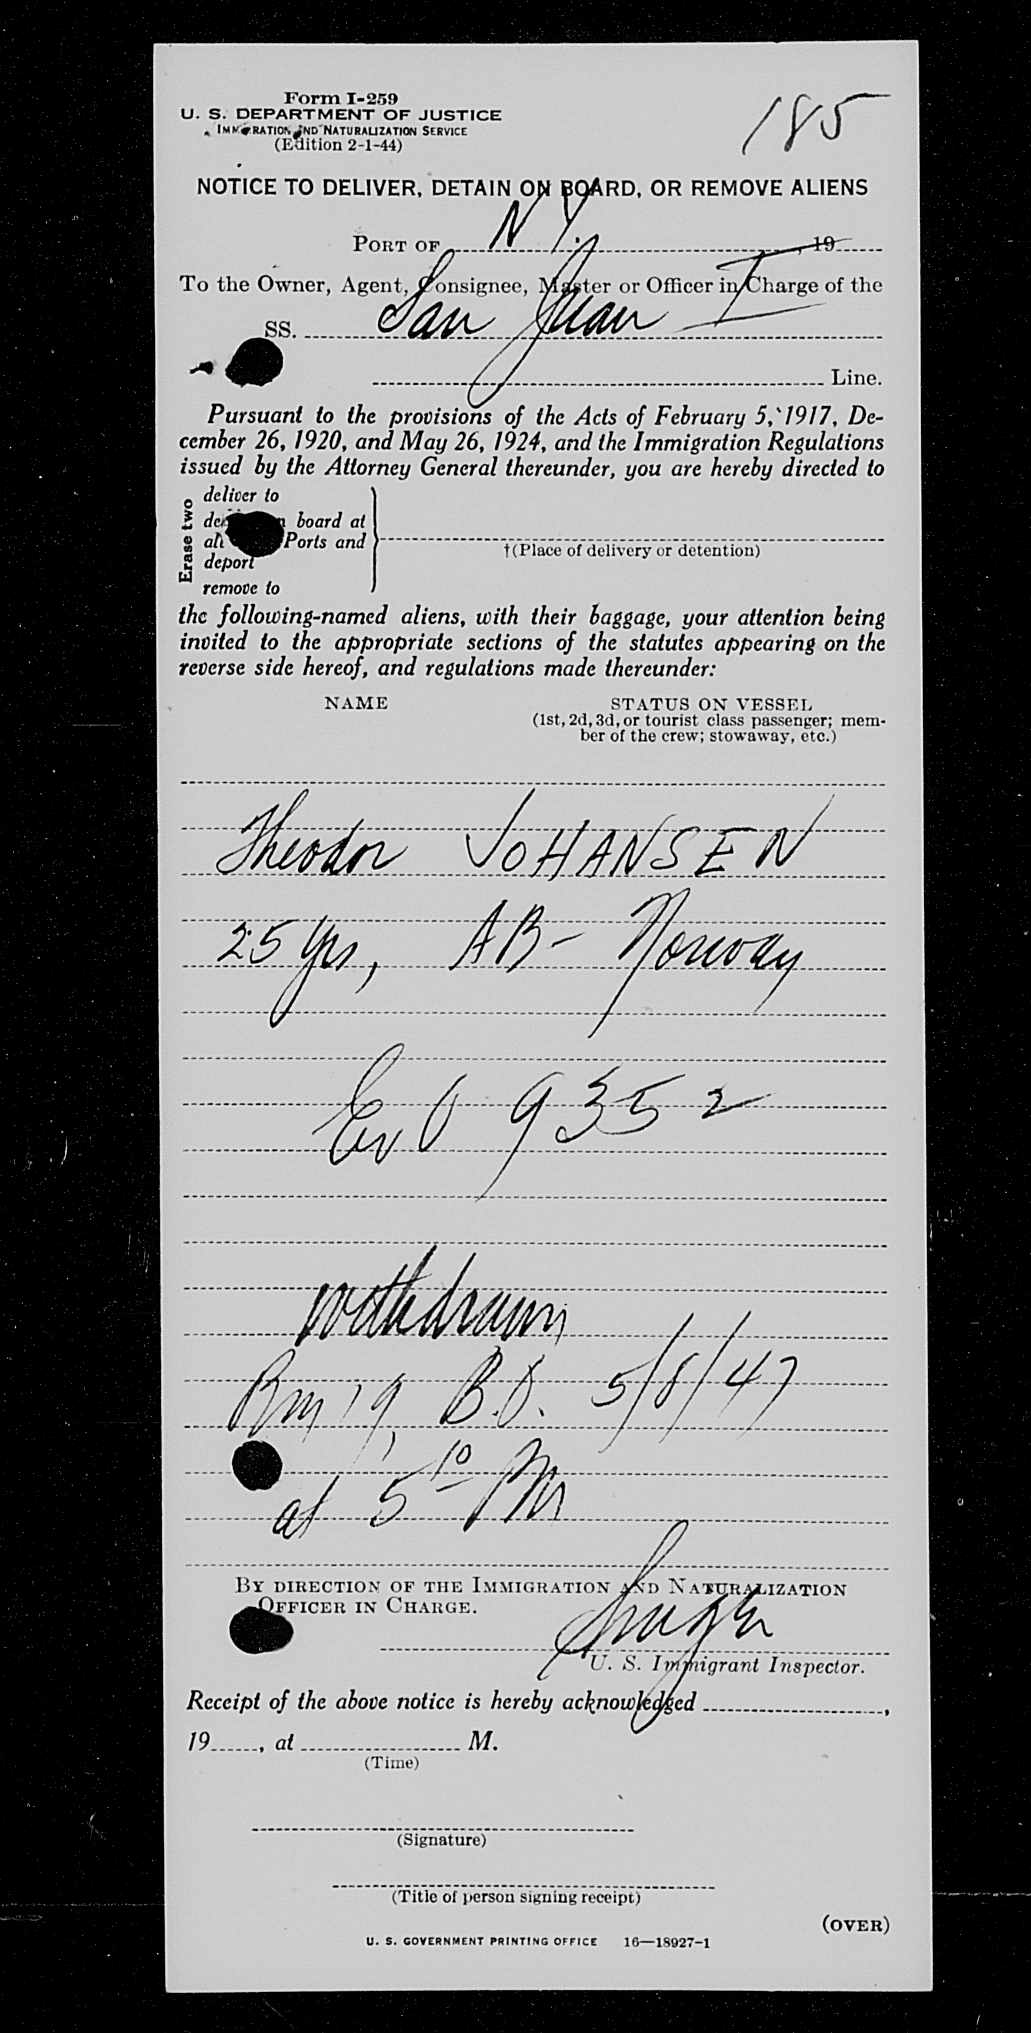 Form I-259
U. S. DEPARTMENT OF JUSTICE
IMMIGRATION AND NATURALIZATION SERVICE
(Edition 2-1-44)
185
NOTICE TO DELIVER, DETAIN ON BOARD, OR REMOVE ALIENS
PORT OF N Y. , 19
To the Owner, Agent, Consignee, Master or Officer in Charge of the
SS. San Juan I
Line.
Pursuant to the provisions of the Acts of February 5, 1917, De-
cember 26, 1920, and May 26, 1924, and the Immigration Regulations
issued by the Attorney General thereunder, you are hereby directed to
Erase two
deliver to
board at
Ports and
deport
remove to
†(Place of delivery or detention)
the following-named aliens, with their baggage, your attention being
invited to the appropriate sections of the statutes appearing on the
reverse side hereof, and regulations made thereunder:
NAME STATUS ON VESSEL
(1st, 2d, 3d, or tourist class passenger; mem-
ber of the crew; stowaway, etc.)
Theodor JOHANSEN
25 yrs, AB- Norway
9352
withdrawn
Rm 19, B.O. 5/8/47
at 5 10 PM
BY DIRECTION OF THE IMMIGRATION AND NATURALIZATION
OFFICER IN CHARGE.
U. S. Immigrant Inspector.
Receipt of the above notice is hereby acknowledged ,
19 , at M.
(Time)
(Signature)
(Title of person signing receipt)
(OVER)
U. S. GOVERNMENT PRINTING OFFICE 16—18927-1